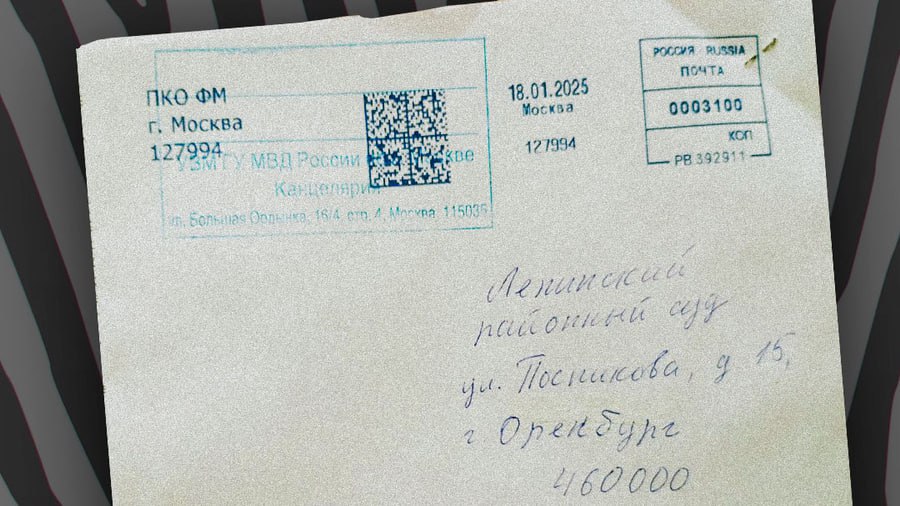 ПКО ФМ
г. Москва
127994
УВМ ГУ МВД России по г. Москве
Канцелярия
ул. Большая Ордынка, 16/4, стр. 4, Москва, 115035
18.01.2025
Москва
127994
РОССИЯ RUSSIA
ПОЧТА
0003100
КОП
РВ 392911
Ленинский
районный суд
ул. Постникова, д 15,
г Оренбург
460000